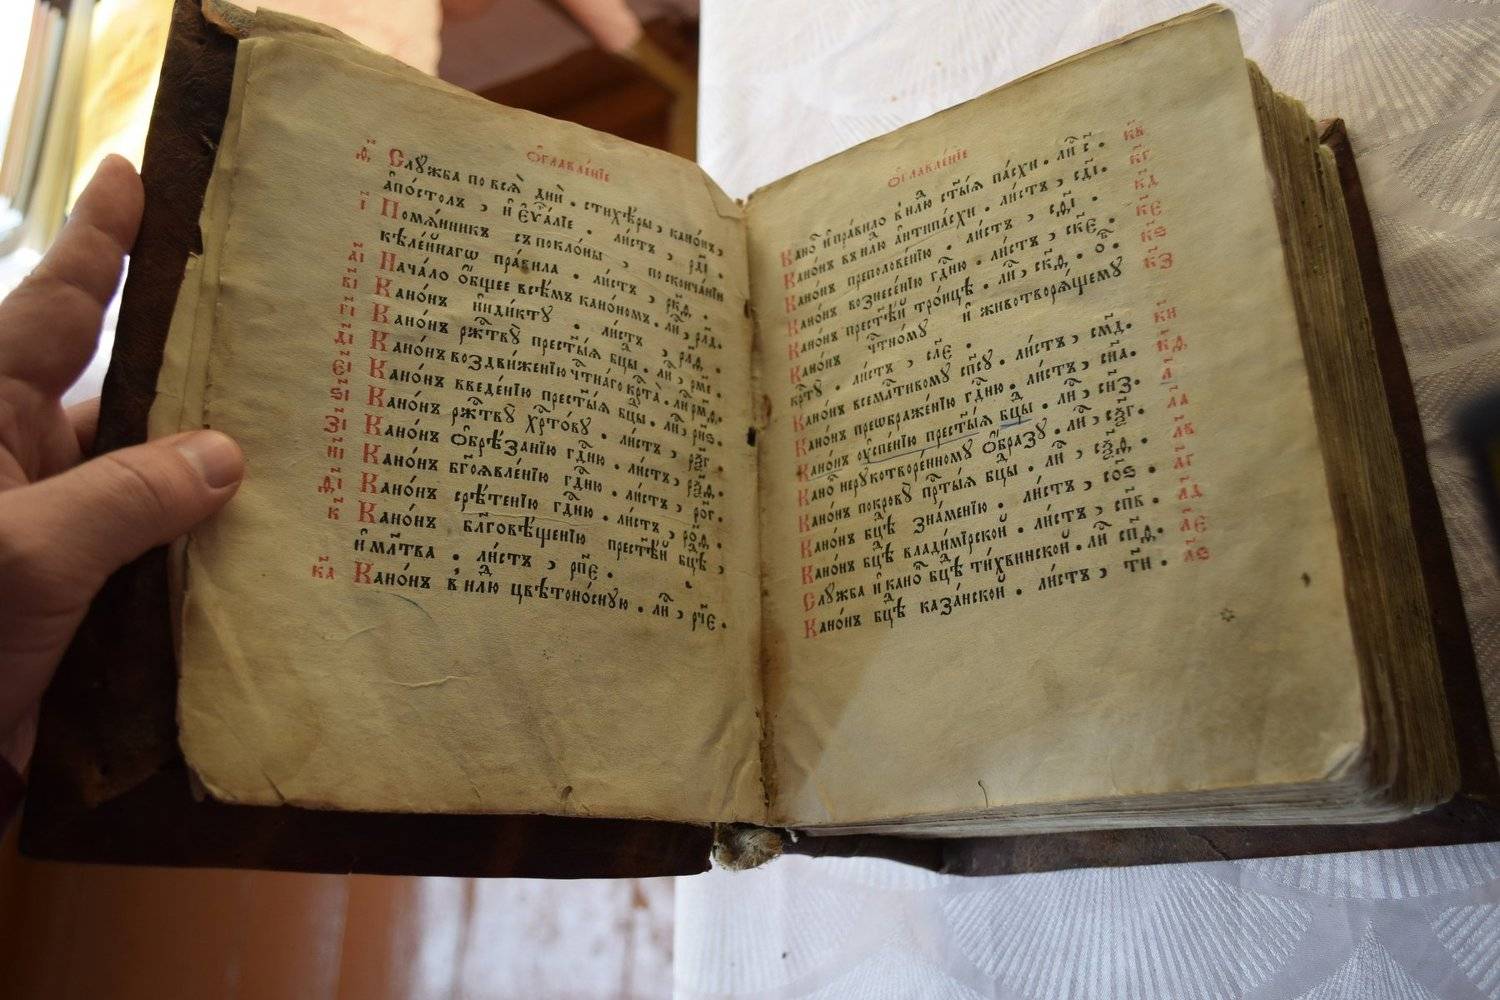 Ѻ҆главле́нїе
ѳ҃ Слꙋ́жба по всѧ̑ дни̑ . стихѣ́ры , кано́нъ ,
а҆по́столъ , и҆ є҆ѵⷢ҇а́лїе . ли́стъ , рд҃і .
і҃ Помѧ́нникъ съ покло́ны , по сконча́нїи
кѣле́йнагѡ пра́вила . ли́стъ , рк҃д .
а҃і Нача́ло ѻ҆́бщее всѣ́мъ кано́номъ . лиⷭ҇ , рл҃д .
в҃і Кано́нъ и҆нди́ктꙋ . ли́стъ , рл҃ѳ .
г҃і Кано́нъ ржⷭ҇твꙋ̀ прест҃ы́ѧ бцⷣы . лиⷭ҇ , рм҃є .
д҃і Кано́нъ воздви́женїю чⷭ҇тна́го крⷭ҇та̀ . лиⷭ҇ рм҃ѳ .
є҃і Кано́нъ введе́нїю прест҃ы́ѧ бцⷣы . лиⷭ҇ , рн҃ѳ .
ѕ҃і Кано́нъ рж҃твꙋ̀ хрⷭ҇то́вꙋ . ли́стъ , рѯ҃г .
з҃і Кано́нъ ѻ҆брѣ́занїю гдⷭ҇ню . ли́стъ , рѯ҃ѳ .
и҃і Кано́нъ бг҃оѧвле́нїю гдⷭ҇ню . ли́стъ , ро҃г .
ѳ҃і Кано́нъ срѣ́тенїю гдⷭ҇ню . ли́стъ , ро҃ѳ .
к҃ Кано́нъ бл҃говѣ́щенїю прест҃ѣ́й бцⷣѣ ,
и҆ мл҃тва . ли́стъ , рп҃є .
к҃а Кано́нъ в̾ нⷣлю цвѣтоно́снꙋю . лиⷭ҇ , рч҃є .
Ѻ҆главле́нїе
к҃в Каноⷩ҇ и҆ пра́вило в̾ нⷣлю ст҃ы́ѧ па́схи . лиⷭ҇ с҃ .
к҃г Кано́нъ въ нⷣлю а҆нтипа́схи . ли́стъ , сд҃і .
к҃д Кано́нъ преполове́нїю . ли́стъ ,
к҃є Кано́нъ вознесе́нїю гдⷭ҇ню . ли́стъ , ск҃є .
к҃ѕ Кано́нъ прест҃ѣ́й тро́ицѣ . лиⷭ҇ , ск҃ѳ . ѻ҆ⷠ҇ .
к҃з Кано́нъ чⷭ҇тно́мꙋ и҆ животворѧ́щемꙋ
крⷭ҇тꙋ̀ . ли́стъ , сл҃є .
к҃и Кано́нъ всемл҃тивомꙋ сп҃сꙋ . ли́стъ , см҃д .
к҃ѳ Кано́нъ преѡбраже́нїю гдⷭ҇ню . ли́стъ , сн҃а .
л҃ Кано́нъ ᲂу҆спе́нїю прест҃ы́ѧ бцⷣы . лиⷭ҇ , сн҃з .
л҃а Каноⷩ҇ нерꙋкотворе́нномꙋ ѻ҆́бразꙋ . лиⷭ҇ , сѯ҃г .
л҃в Кано́нъ покровꙋ̀ прⷭ҇ты́ѧ бцⷣы . лиⷭ҇ , сѯ҃ѳ .
л҃г Кано́нъ бцⷣѣ зна́менїю . ли́стъ , со҃ѕ .
л҃д Кано́нъ бцⷣѣ влади́мїрской . ли́стъ , сп҃в .
л҃є Слꙋ́жба и҆ каноⷩ҇ бцⷣѣ ти́хвинской . лиⷭ҇ сп҃ѳ .
л҃ѕ Кано́нъ бцⷣѣ каза́нской . ли́стъ , т҃и .